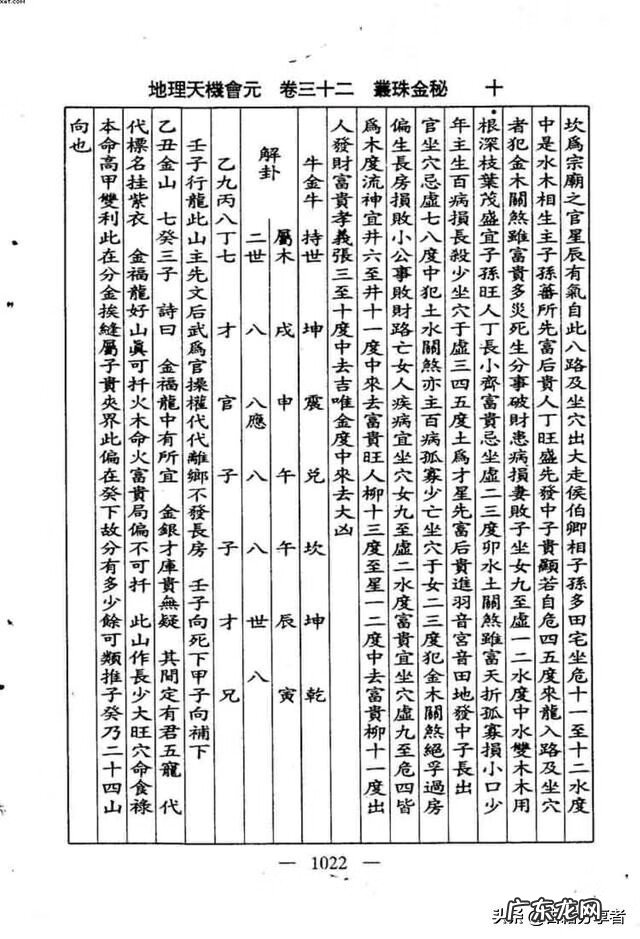 地理天機會元　卷三十二　叢珠金秘　十
坎為宗廟之官星辰有氣自此八路及坐穴出大走侯伯卿相子孫多田宅坐危十一至十二水度
中是水木相生主子孫蕃所先富后貴人丁旺盛先發中子貴顯若自危四五度來龍入路及坐穴
者犯金木關煞雖富貴多災死生分事破財患病損妻敗子坐女九至虛一二水度中水雙木木用
根深枝葉茂盛宜子孫旺人丁長小齊富貴忌坐虛二三度卯水土關煞雖富夭折孤寡損小口少
年主生百病損長殺少坐穴于虛三四五度土為才星先富后貴進羽音宮音田地發中子長出
官坐穴忌虛七八度中犯土水關煞亦主百病孤寡少亡坐穴于女二三度犯金木關煞絕孚過房
偏生長房損敗小公事敗財路亡女人疾病宜坐穴女九至虛二水度富貴宜坐穴虛九至危四皆
為木度流神宜井六至井十一度中來去富貴旺人柳十三度至星一二度中去富貴柳十一度出
人發財富貴孝義張三至十度中去吉唯金度中來去大凶
牛金牛　持世　坤　震　兌　坎　坤　乾
解卦　屬木　戌　申　午　午　辰　寅
二世　八　八應　八　八　世　八
乙九丙八丁七　才　官　子　子　才　兄
壬子行龍此山主先文后武為官操權代代離鄉不發長房　壬子向死下甲子向補下
乙丑金山　七癸三子　詩曰　金福龍中有所宜　金銀才庫貴無疑　其間定有君五寵　代
代標名挂紫衣　金福龍好山眞可扦火木命火富貴局偏不可扦　此山作長少大旺穴命食祿
本命高甲雙利此在分金挨縫屬子貴夾界此偏在癸下故分有多少餘可類推子癸乃二十四山
向也
— 1022 —
头条
广东龙网